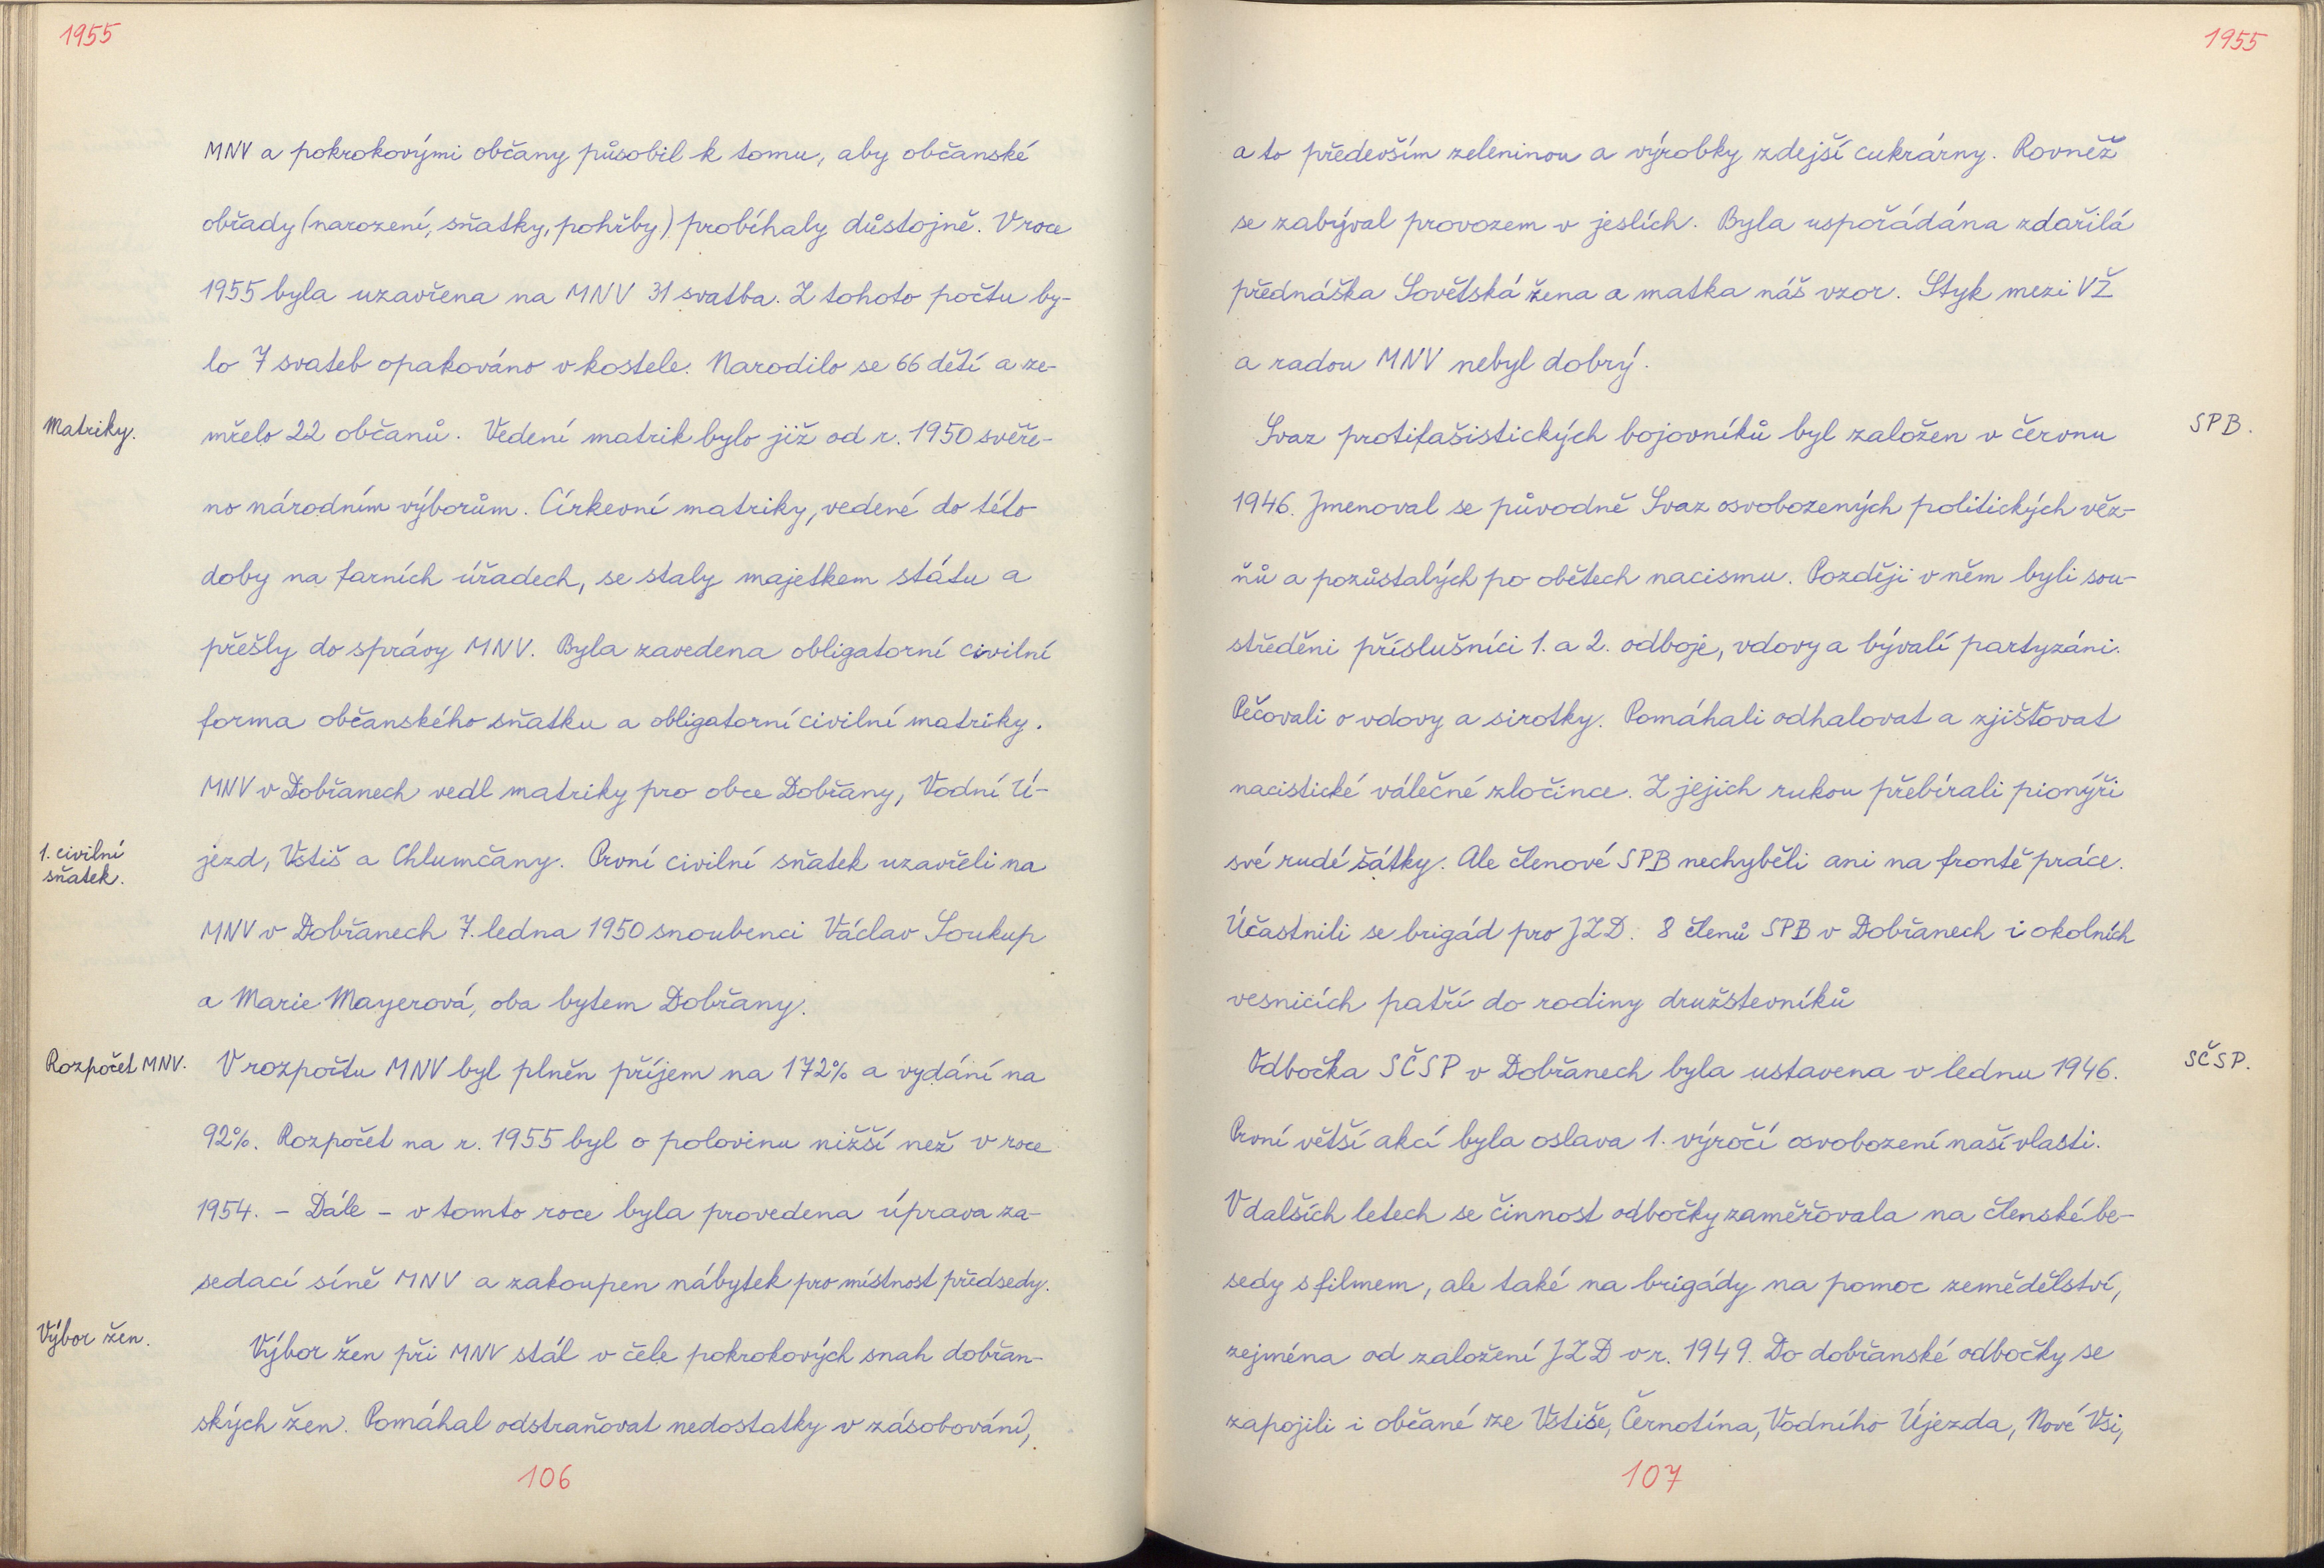 1955
MNV a pokrokovými občany působil k tomu, aby občanské
obřady (narození, sňatky, pohřby) probíhaly důstojně. V roce
1955 byla uzavřena na MNV 31 svatba. Z tohoto počtu by-
lo 7 svateb opakováno v kostele. Narodilo se 66 dětí a ze-
Matriky.
mřelo 22 občanů. Vedení matrik bylo již od r. 1950 svěře-
no národním výborům. Církevní matriky, vedené do této
doby na farních úřadech, se staly majetkem státu a
přešly do správy MNV. Byla zavedena obligatorní civilní
forma občanského sňatku a obligatorní civilní matriky.
MNV v Dobřanech vedl matriky pro obce Dobřany, Vodní Ú-
1. civilní
sňatek.
jezd, Vstiš a Chlumčany. První civilní sňatek uzavřeli na
MNV v Dobřanech 7. ledna 1950 snoubenci Václav Soukup
a Marie Mayerová, oba bytem Dobřany.
Rozpočet MNV.
V rozpočtu MNV byl plněn příjem na 172% a vydání na
92%. Rozpočet na r. 1955 byl o polovinu nižší než v roce
1954. - Dále - v tomto roce byla provedena úprava za-
sedací síně MNV a zakoupen nábytek pro místnost předsedy.
Výbor žen.
Výbor žen při MNV stál v čele pokrokových snah dobřan-
ských žen. Pomáhal odstraňovat nedostatky v zásobování,
106
1955
a to především zeleninou a výrobky zdejší cukrárny. Rovněž
se zabýval provozem v jeslích. Byla uspořádána zdařilá
přednáška Sovětská žena a matka náš vzor. Styk mezi VŽ
a radou MNV nebyl dobrý.
Svaz protifašistických bojovníků byl založen v červnu
SPB.
1946. Jmenoval se původně Svaz osvobozených politických věz-
ňů a pozůstalých po obětech nacismu. Později v něm byli sou-
středěni příslušníci 1. a 2. odboje, vdovy a bývalí partyzáni.
Pečovali o vdovy a sirotky. Pomáhali odhalovat a zjišťovat
nacistické válečné zločince. Z jejich rukou přebírali pionýři
své rudé šátky. Ale členové SPB nechyběli ani na frontě práce.
Účastnili se brigád pro JZD. 8 členů SPB v Dobřanech i okolních
vesnicích patří do rodiny družstevníků
Odbočka SČSP v Dobřanech byla ustavena v lednu 1946.
SČSP.
První větší akcí byla oslava 1. výročí osvobození naší vlasti.
V dalších letech se činnost odbočky zaměřovala na členské be-
sedy s filmem, ale také na brigády na pomoc zemědělství,
zejména od založení JZD v r. 1949. Do dobřanské odbočky se
zapojili i občané ze Vstiše, Černotína, Vodního Újezda, Nové Vsi,
107